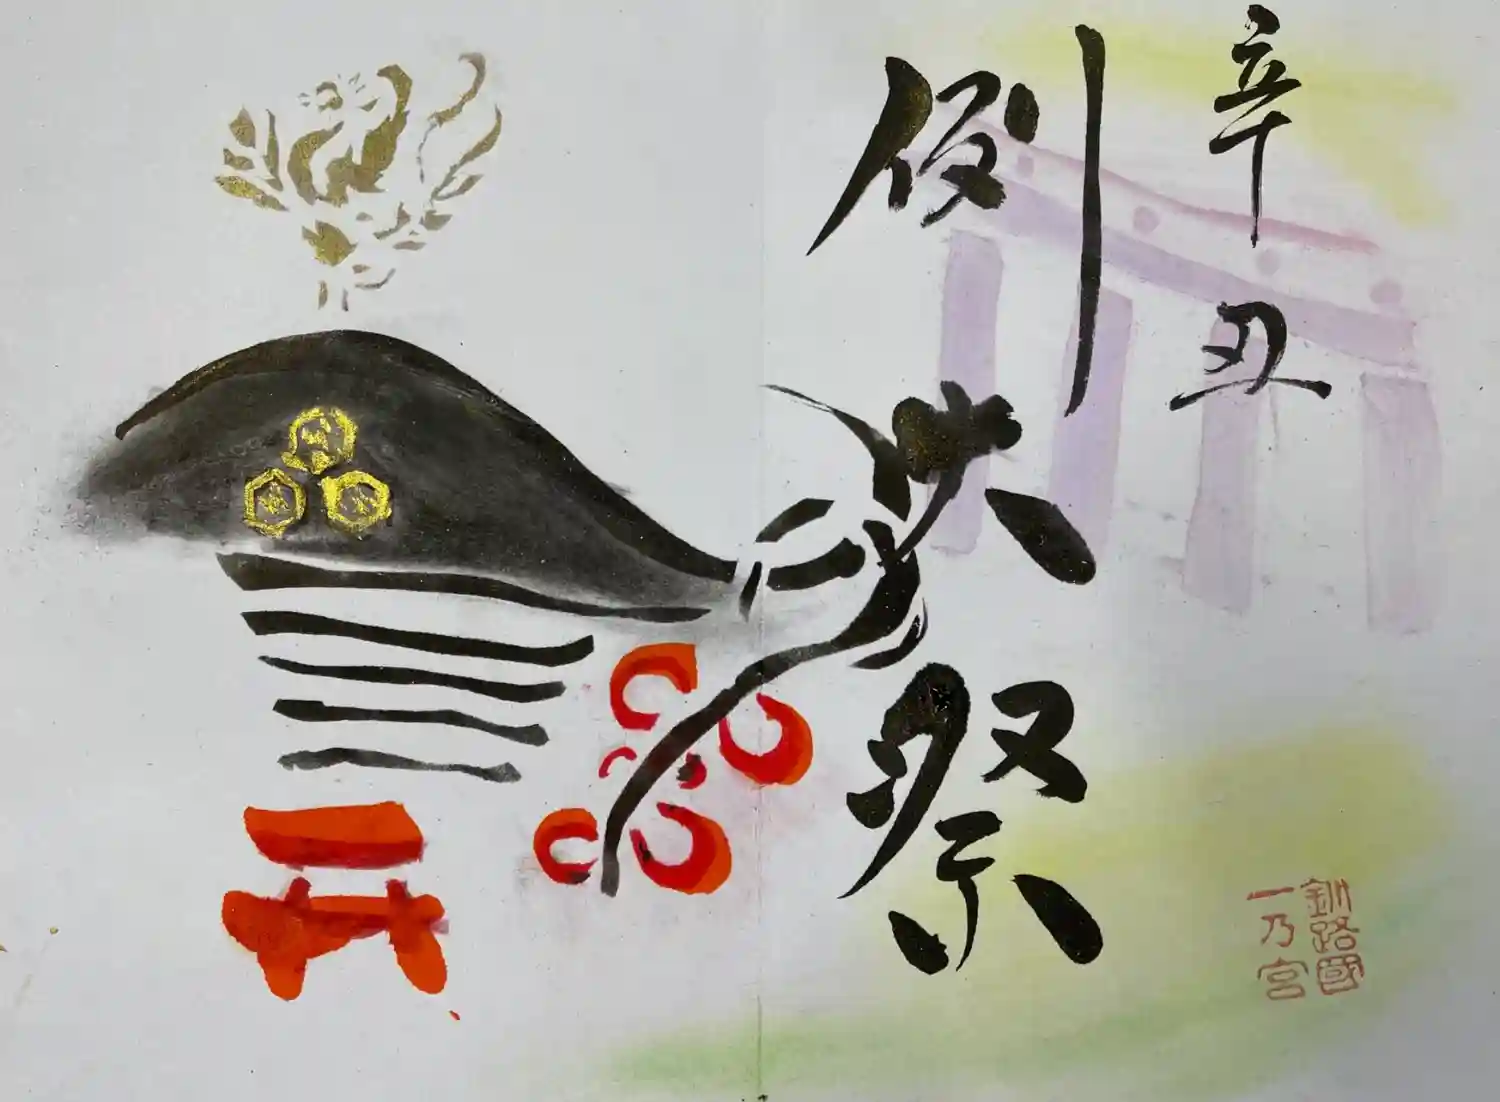 辛丑
例大祭
釧路國
一乃宮